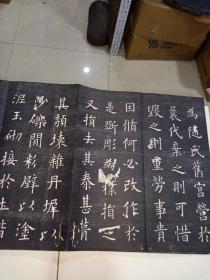 為隨氏舊宮營於
曩代棄之則可惜
毀之則重勞事貴
因循何必改作於
是斲彫為樸損之
又損去其泰甚葺
其頹壞雜丹墀以
沙礫間粉壁以塗
泥玉砌接於土階